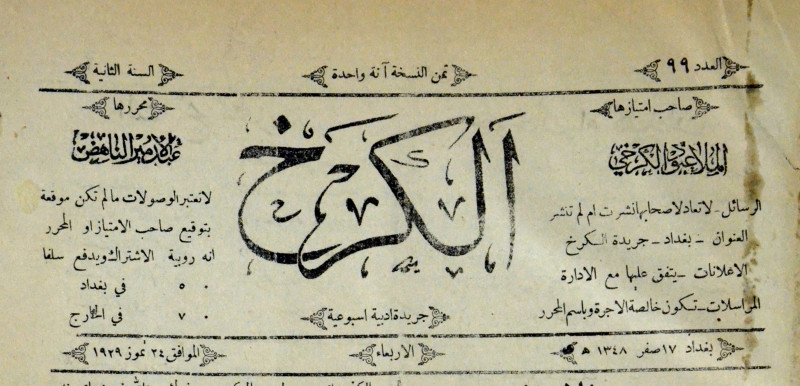 العدد ٩٩
ثمن النسخة آنة واحدة
السنة الثانية
صاحب امتيازها
الملا عبود الكرخي
الرسائل - لا تعاد لاصحابها نشرت ام لم تنشر
العنوان - بغداد - جريدة الكرخ
الاعلانات - يتفق عليها مع الادارة
المراسلات - تكون خالصة الاجرة وباسم المحرر
الكرخ
جريدة ادبية اسبوعية
محررها
عبد الامير الناهض
لا تعتبر الوصولات مالم تكن موقعة
بتوقيع صاحب الامتياز او المحرر
انه روبية الاشتراك ويدفع سلفا
٥٠ في بغداد
٧٠ في الخارج
بغداد ١٧ صفر ١٣٤٨ هـ
الاربعاء
الموافق ٢٤ تموز ١٩٢٩